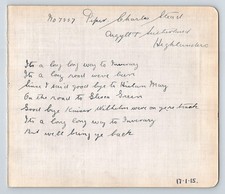 No 7207 Piper Charles Stuart
Argyll & Sutherland
Highlanders
It's a long long way to Inverary
It's a long road were here
Since I said good bye to Hieland Mary
On the road to Glesca Green
Good bye Kaiser Wilhelm were on yere track
It's a long long way to Inverary
But we'll bring ye back
17-1-15.